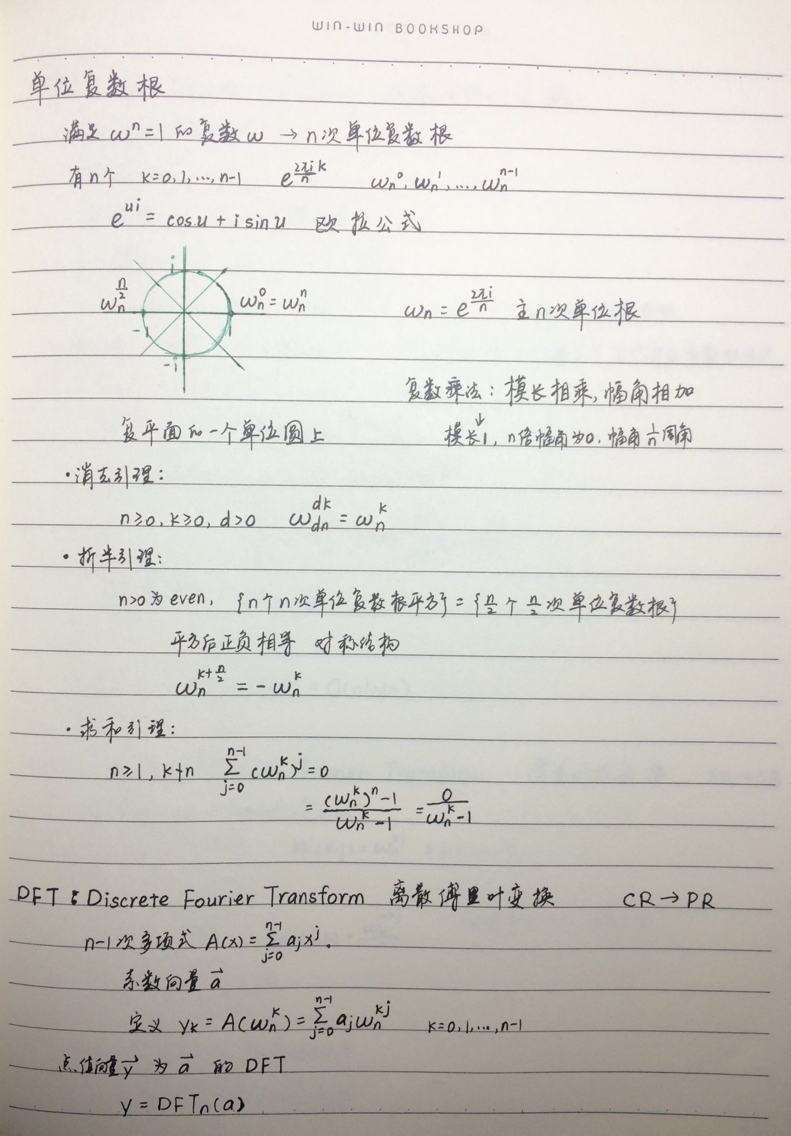 WIN-WIN BOOKSHOP
单位复数根
满足 ωⁿ=1 的复数 ω → n次单位复数根
有n个 k=0,1,...,n-1 e^{\frac{2πi}{n}k} ω_n^0, ω_n^1, ..., ω_n^{n-1}
e^{ui} = cosu + i sinu 欧拉公式
i
ω_n^{\frac{n}{2}} ω_n^0 = ω_n^n
-1 1
-i
ω_n = e^{\frac{2πi}{n}} 主n次单位根
复数乘法: 模长相乘, 幅角相加
复平面的一个单位圆上
↓
模长1, n倍幅角为0, 幅角\frac{1}{n}周角
·消去引理:
n≥0, k≥0, d>0 ω_{dn}^{dk} = ω_n^k
·折半引理:
n>0 为 even, {n个n次单位复数根平方} = {\frac{n}{2}个\frac{n}{2}次单位复数根}
平方后正负相等 对称结构
ω_n^{k+\frac{n}{2}} = -ω_n^k
·求和引理:
n≥1, k∤n \sum_{j=0}^{n-1} (ω_n^k)^j = 0
= \frac{(ω_n^k)^n-1}{ω_n^k-1} = \frac{0}{ω_n^k-1}
DFT: Discrete Fourier Transform 离散傅里叶变换 CR → PR
n-1次多项式 A(x) = \sum_{j=0}^{n-1} a_j x^j.
系数向量 \vec{a}
定义 y_k = A(ω_n^k) = \sum_{j=0}^{n-1} a_j ω_n^{kj} k=0,1,...,n-1
点值向量 \vec{y} 为 \vec{a} 的 DFT
y = DFT_n(a)